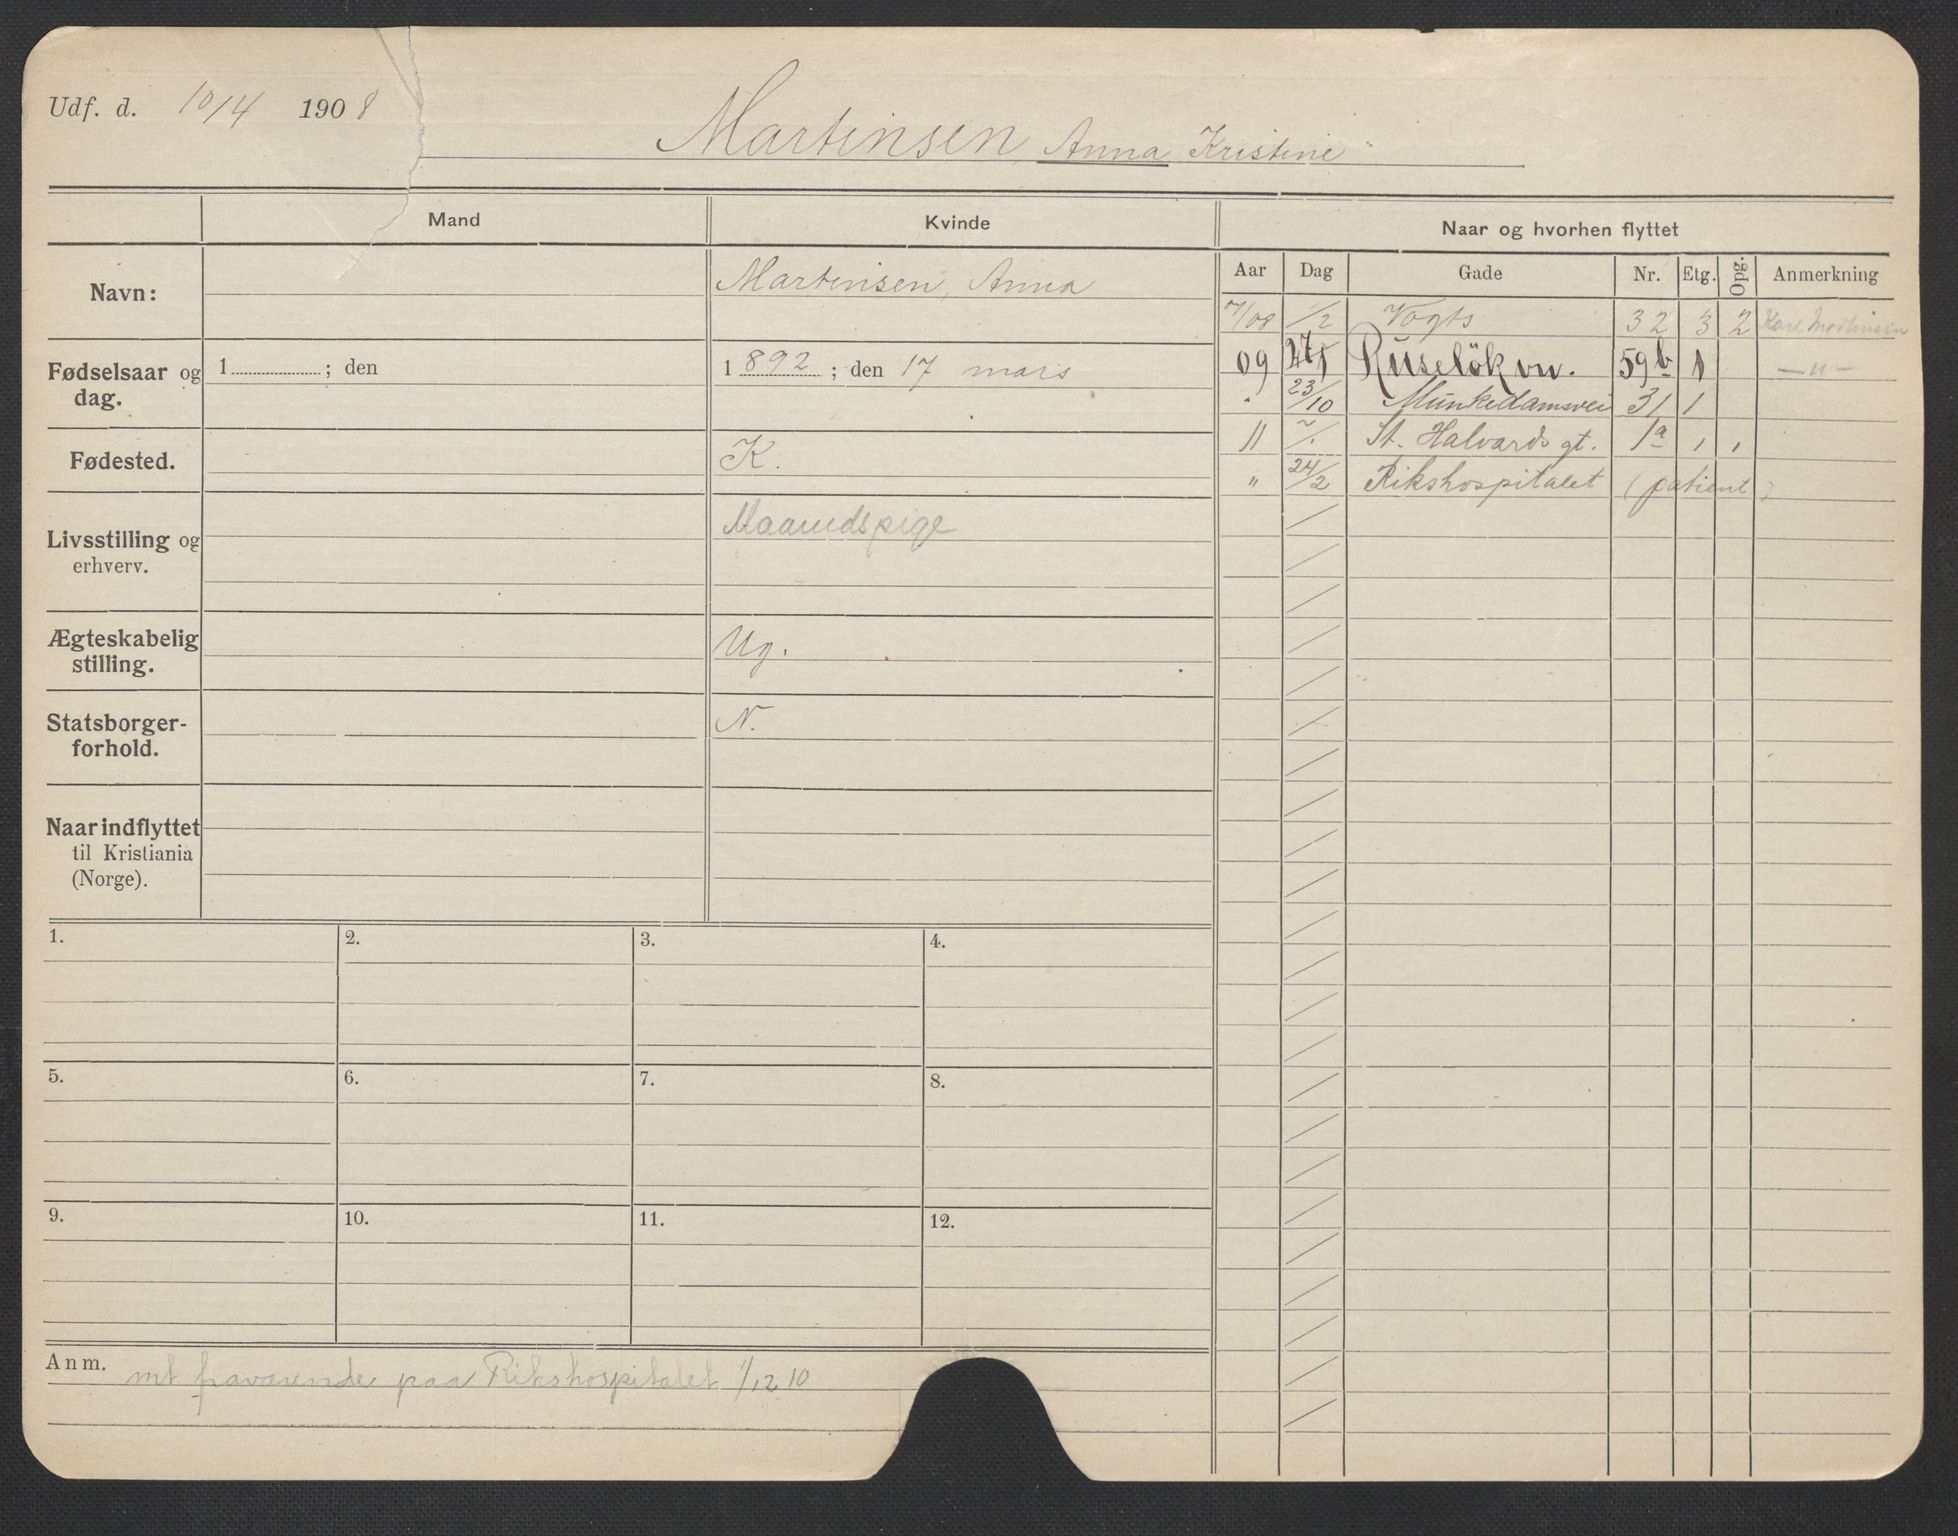 Udf. d. 10/4 1908
Martinsen, Anna Kristine
Mand Kvinde Naar og hvorhen flyttet
Aar Dag Gade Nr. Etg. Opg. Anmerkning
Navn: Martinsen, Anna
/08 1/2 Vogts 32 3 2 Karl Martinsen
Fødselsaar og dag. 1 ; den 1892 ; den 17 mars
09 Ruseløkvn. 59b 1 — " —
" 23/10 Munkedamsvei 31 1
Fødested. K.
11 St. Halvards gt. 1a 1 1
" 24/2 Rikshospitalet (patient)
Livsstilling og erhverv. Maanedspige
Ægteskabelig stilling. Ug.
Statsborgerforhold. N.
Naar indflyttet
til Kristiania
(Norge).
1. 2. 3. 4.
5. 6. 7. 8.
9. 10. 11. 12.
Anm. mt fraværende paa Rikshospitalet 1/12 10